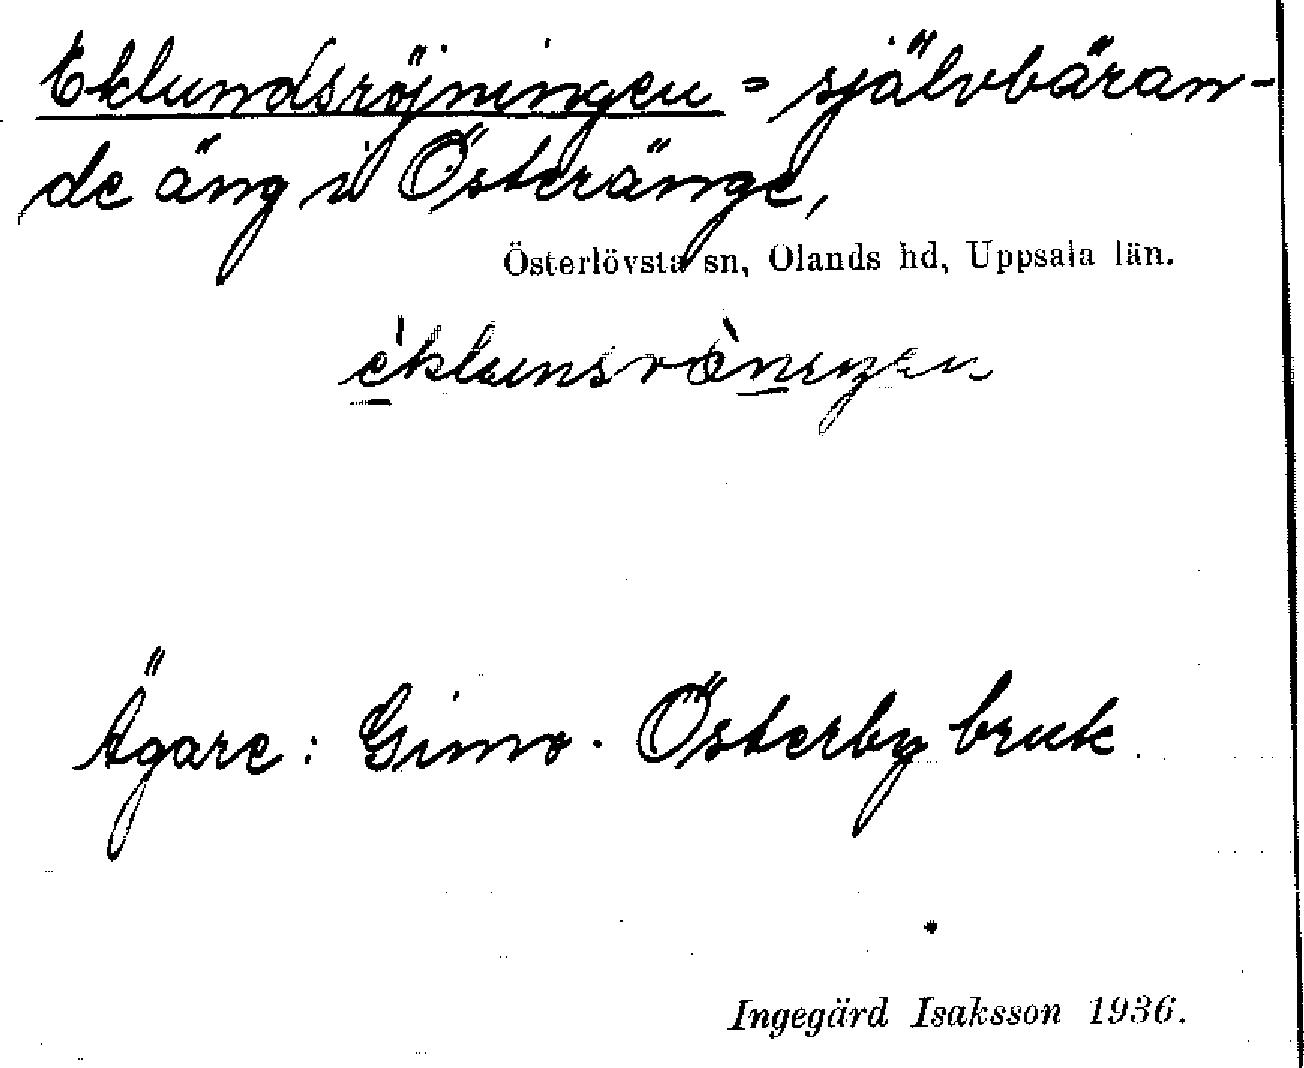 Eklundsröjningen = självbäran-
de äng i Österänge,
Österlövsta sn, Olands hd, Uppsala län.
Ägare: Gimo-Österby bruk.
Ingegärd Isaksson 1936.